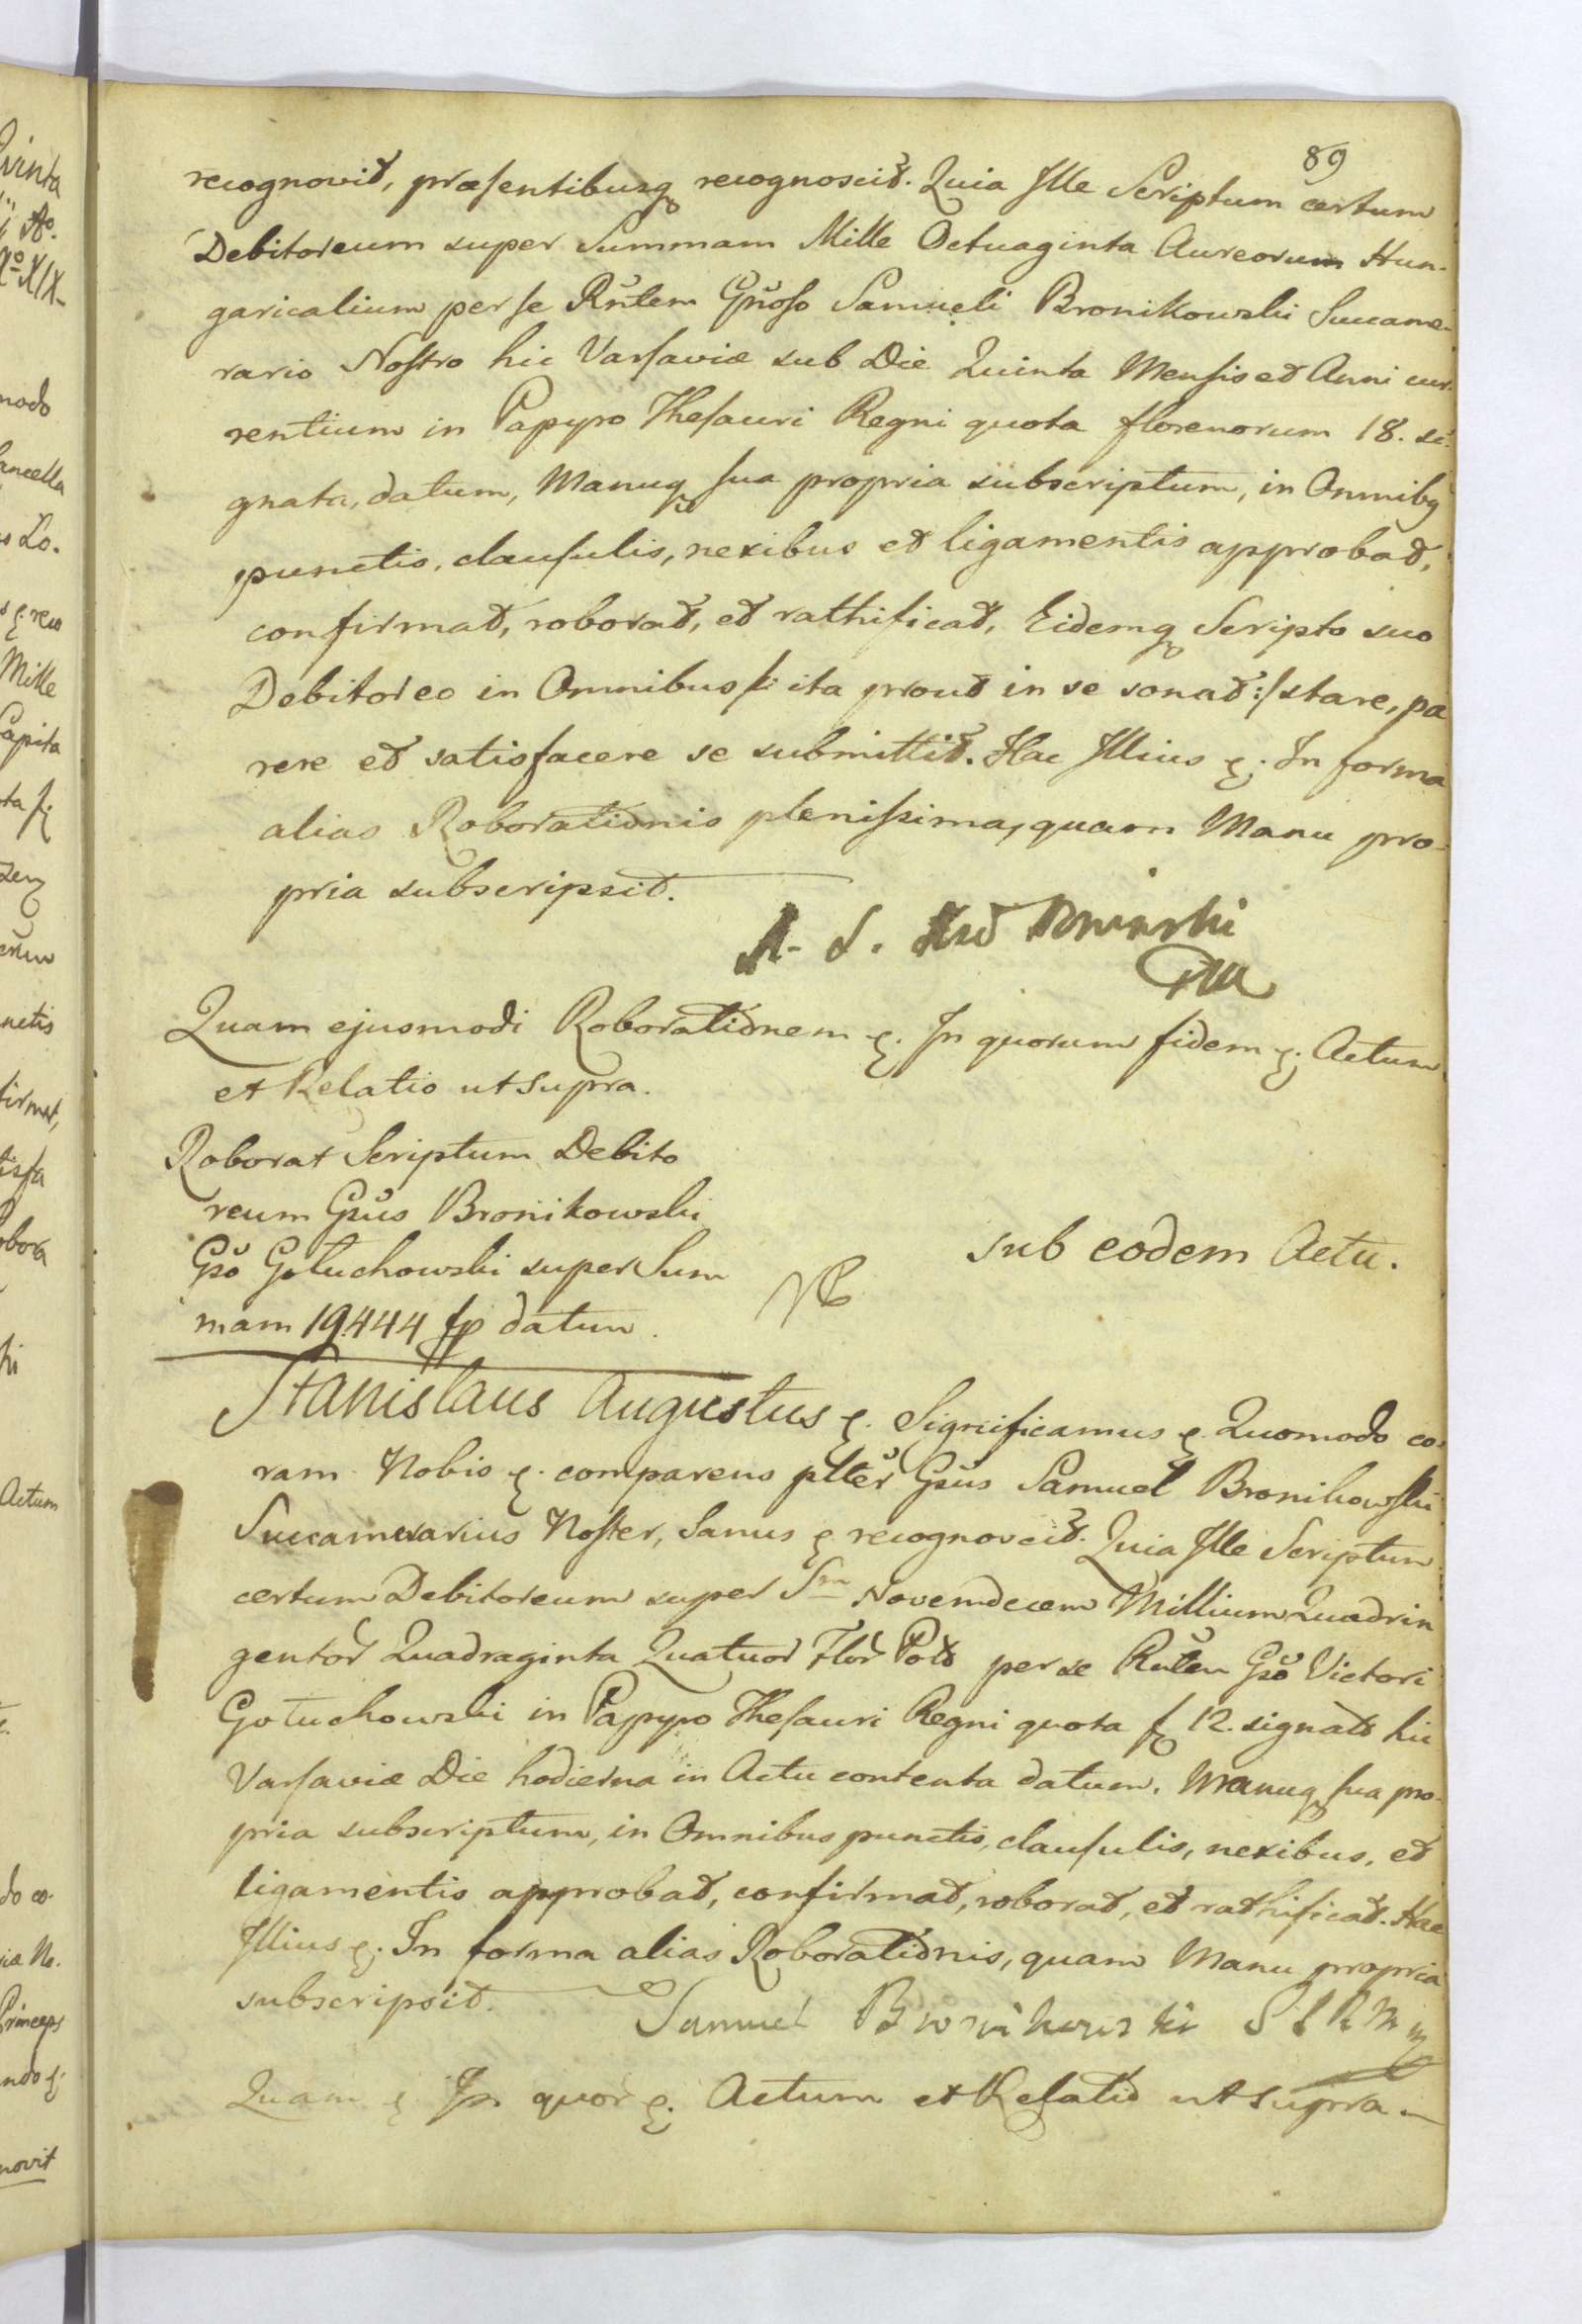 89
recognovit, præsentibusq recognoscit. Quia Ille Scriptum certum
Debitoreum super Summam Mille Octuaginta Aureorum Hun-
garicalium per se Rñtem Gñoso Samueli Bronikowski Succame-
rario Nostro hic Varsaviæ sub Die Quinta Mensis et Anni cur-
rentium in Papyro Thesauri Regni quota florenorum 18. si-
gnata, datum, Manuq sua propria subscriptum, in Omnibq
punctis, clausulis, nexibus et ligamentis approbat,
confirmat, roborat, et rathificat, Eidemq Scripto suo
Debitoreo in Omnibus /: ita prout in se sonat :/ stare, pa
rere et satisfacere se submittit. Hac Illius &. In forma
alias Roborationis plenissima, quam Manu pro-
pria subscripsit.
Quam ejusmodi Roborationem &. In quorum fidem &. Actum
et Relatio ut supra.
Roborat Scriptum Debito
reum Gsus Bronikowski
Gso Gołuchowski super Sum
mam 19444 fp datum.
sub eodem Actu.
Stanislaus Augustus &. Significamus & Quomodo co-
ram Nobis &. comparens plter Gsus Samuel Bronikowski
Succamerarius Noster, Sanus & recognovcit. Quia Ille Scriptum
certum Debitoreum super Sm Novemdecem Millium Quadrin
gentor Quadraginta Quatuor Flor Pold per se Rñtem Gso Victori
Gołuchowski in Papyro Thesauri Regni quota f 12. signato hic
Varsaviæ Die hodierna in Actu contenta datum. Manuq sua pro-
pria subscriptum, in Omnibus punctis, clausulis, nexibus, et
ligamentis approbat, confirmat, roborat, et rathificat. Hac
Illius &. In forma alias Roborationis, quam Manu propria
subscripsit.
Samuel Bronikowski
Quam & In quor &. Actum et Relatio ut supra.